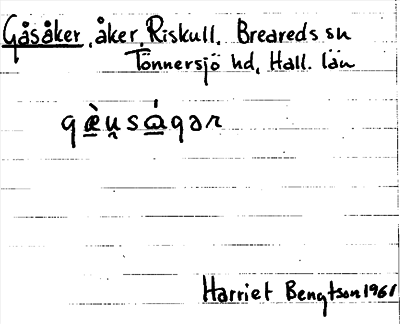 Gåsåker, åker, Riskull, Breareds sn
Tönnersjö hd, Hall. län
gæ̀u̯såqər
Harriet Bengtson 1961